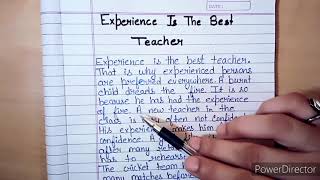 DATE:
Experience Is The Best
Teacher
Experience is the best teacher.
That is why experienced persons
are preferred everywhere. A burnt
child dreads the fire. It is so
because he has had the experience
of fire. A new teacher in the
class is very often not confident
His experience makes him
confidence. A
after many
has to rehearse
The cricket team
many matches before
PowerDirector